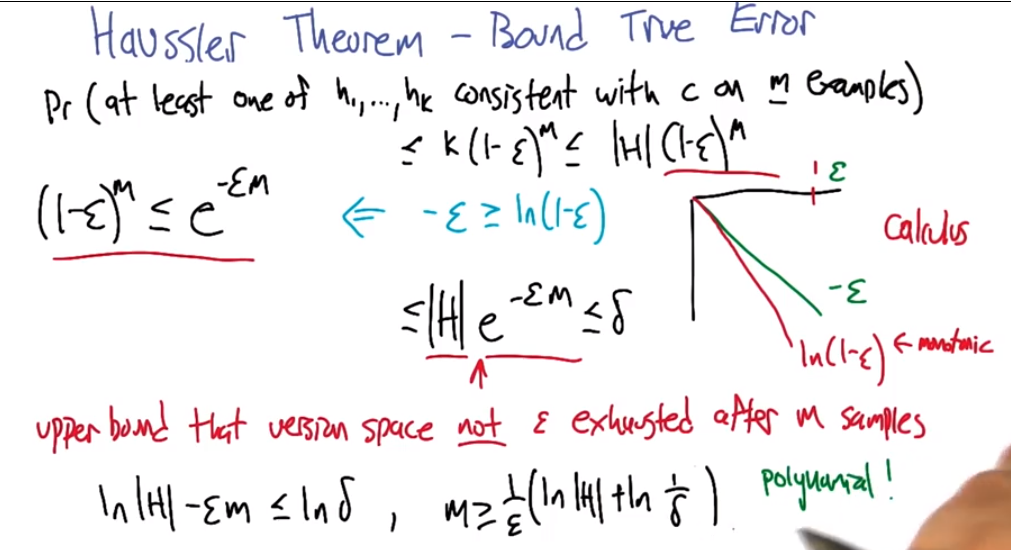 Haussler Theorem - Bound True Error
Pr (at least one of h₁,...,hₖ consistent with c on m examples)
≤ k(1-ε)ᵐ ≤ |H| (1-ε)ᵐ
(1-ε)ᵐ ≤ e^(-εm) ⇐ -ε ≥ ln(1-ε)
ε
calculus
-ε
ln(1-ε) ← monotonic
≤ |H| e^(-εm) ≤ δ
upper bound that version space not ε exhausted after m samples
ln|H| - εm ≤ ln δ , m ≥ 1/ε (ln |H| + ln 1/δ) polynomial!